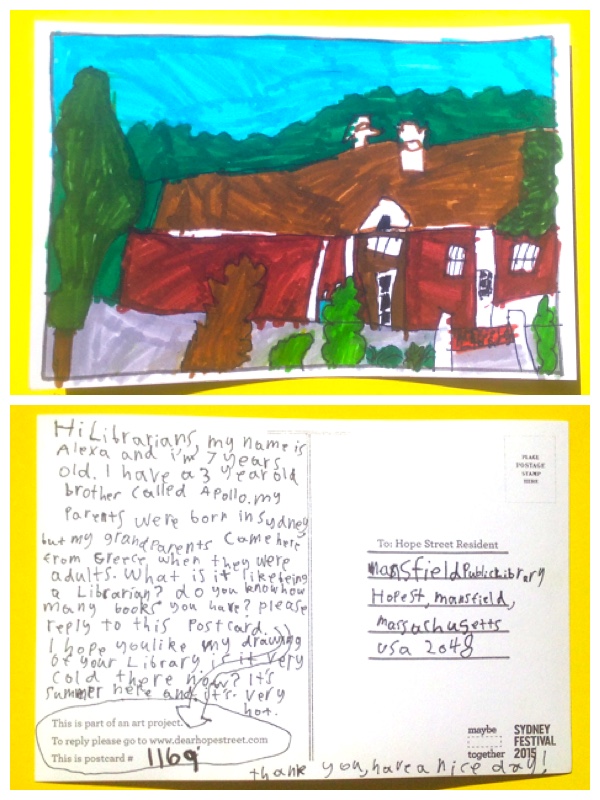 Hi Librarians, my name is
Alexa and i'm 7 years
old. I have a 3 year old
brother called Apollo. my
Parents were born in Sydney
but my grandparents came here
from Greece when they were
adults. What is it like being
a Librarian? do you know how
many books you have? please
reply to this Postcard.
I hope you like my drawing
of your Library is it very
cold there now? It's
summer here and it's very
hot.
This is part of an art project.
To reply please go to www.dearhopestreet.com
This is postcard # 1169
PLACE
POSTAGE
STAMP
HERE
To: Hope Street Resident
Mansfield Public Library
Hope st, mansfield,
massashugetts
usa 2048
maybe
together
SYDNEY
FESTIVAL
2015
thank you, have a nice day!